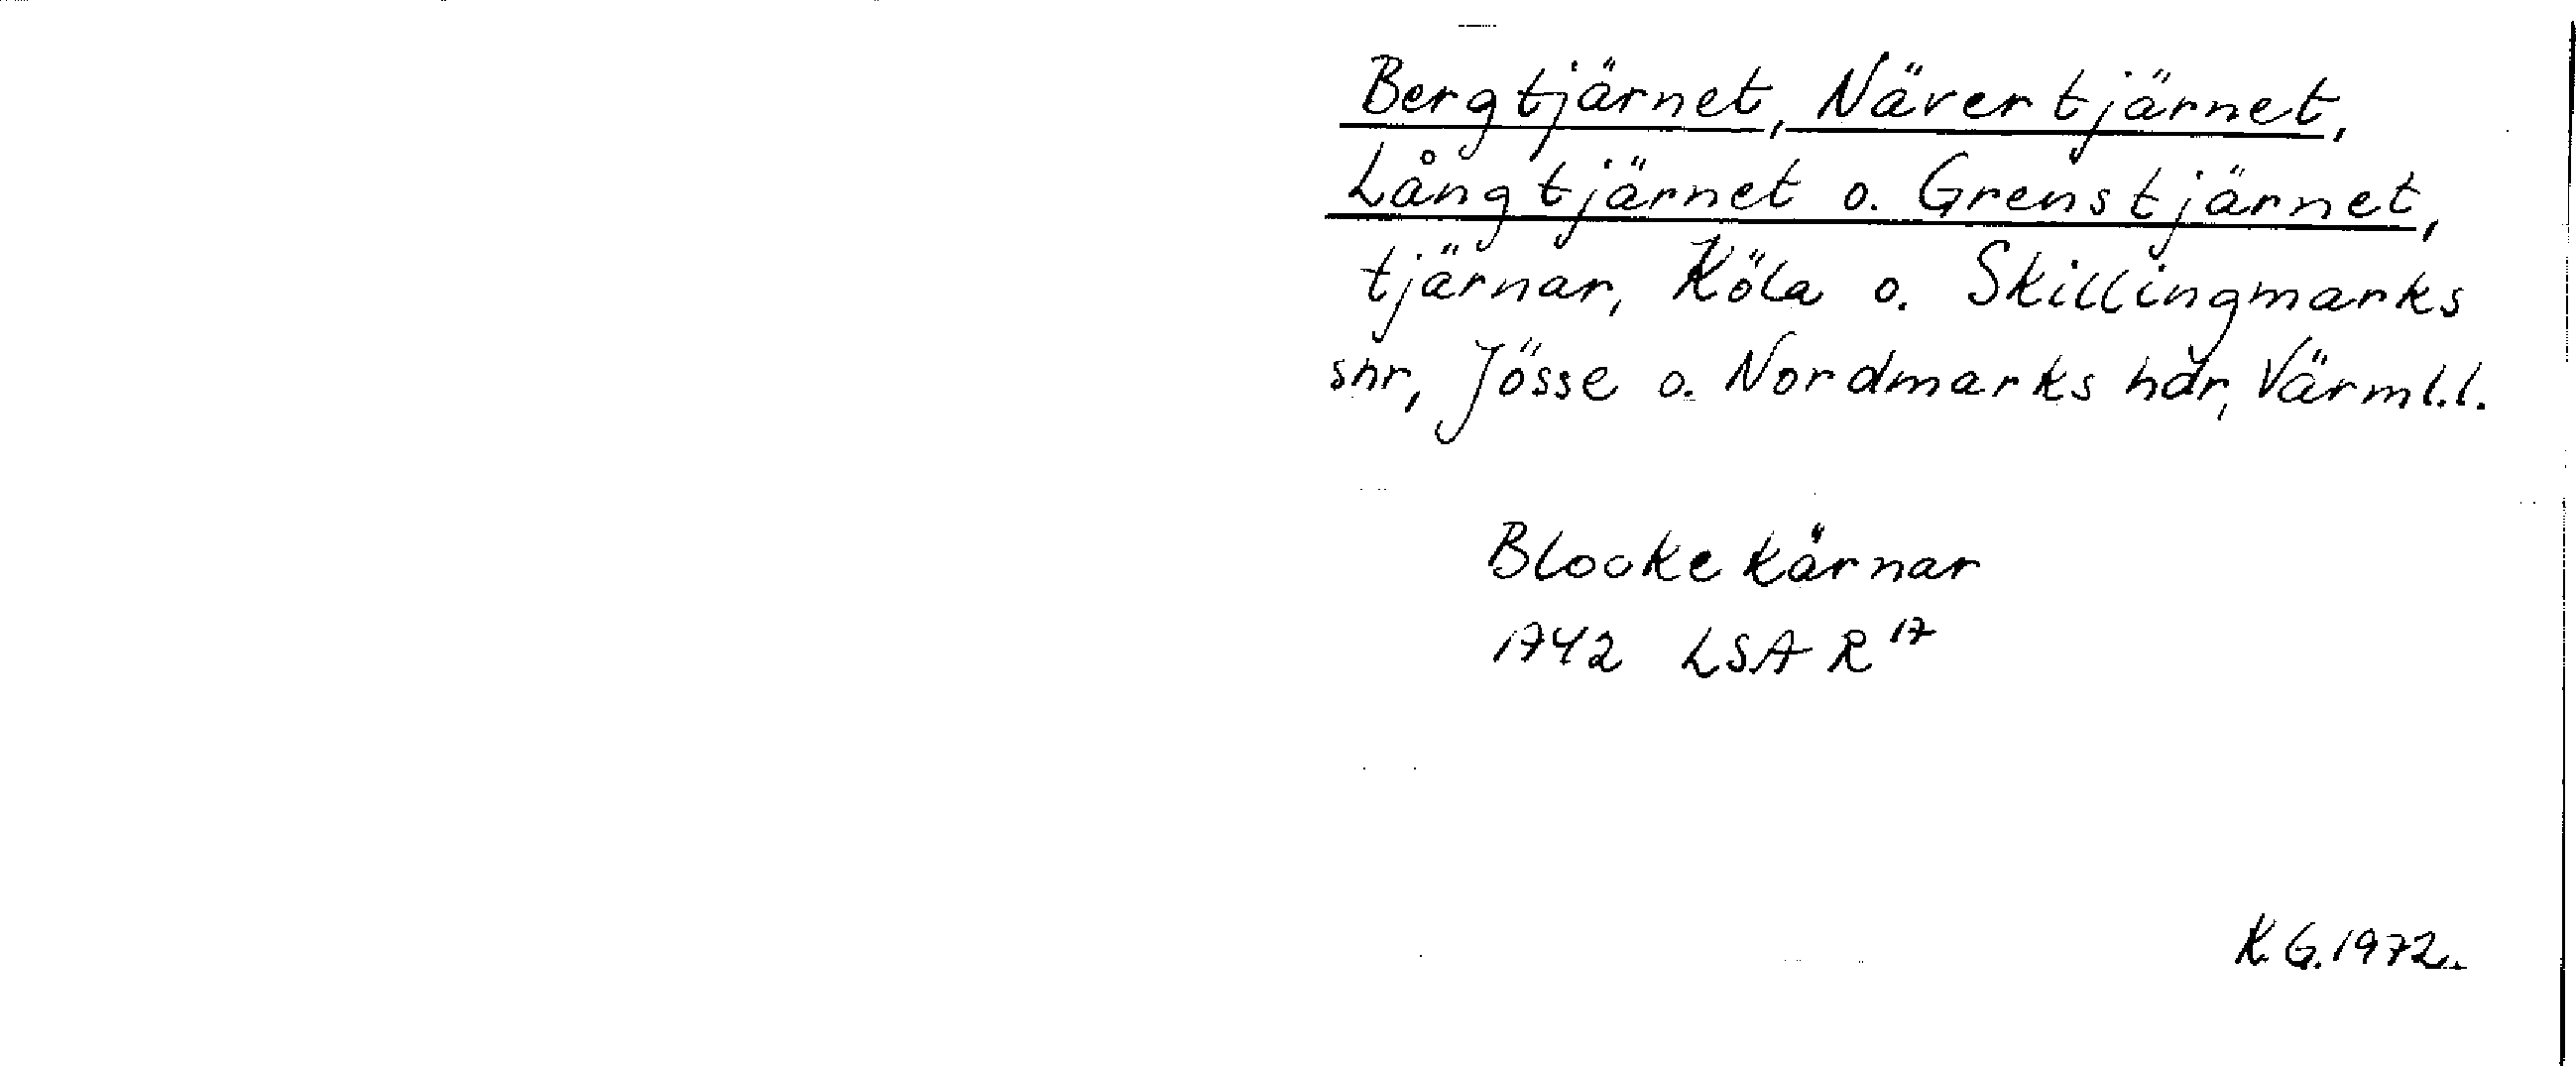 Bergtjärnet, Nävertjärnet,
Långtjärnet o. Grenstjärnet,
tjärnar, Köla o. Skillingmarks
snr, Jösse o. Nordmarks hdr, Värml.l.
Blookekärnar
1742 LSA R 17
K.G.1972.